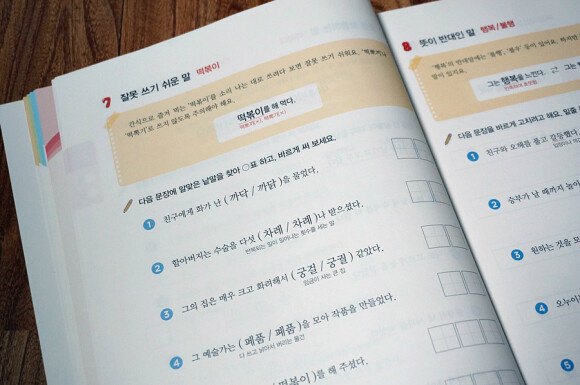 7 잘못 쓰기 쉬운 말 떡볶이
간식으로 즐겨 먹는 '떡볶이'를 소리 나는 대로 쓰려다 보면 잘못 쓰기 쉬워요.
쓰지 않도록 주의해야 해요.
떡볶이를 해 먹다.
다음 문장에 알맞은 낱말을 찾아 ○표 하고, 바르게 써 보세요.
1 친구에게 화가 난 ( 까닥 / 까닭 )을 물었다.
2 할아버지는 수술을 다섯 ( 차례 / 차레 )나 받으셨다.
반복되는 일이 일어나는 횟수를 세는 말
3 그의 집은 매우 크고 화려해서 ( 궁걸 / 궁궐 ) 같았다.
임금이 사는 큰 집
4 그 예술가는 ( 폐품 / 페품 )을 모아 작품을 만들었다.
다 쓰고 남아서 버리는 물건
떡볶이 )를 해 주셨다.
8 뜻이 반대인 말 행복/불행
'행복'의 반대말에는 '불행', '불우' 등이 있어요. 하지만
말이 있지요.
그는 행복을 느낀다.
다음 문장을 바르게 고치려고 해요. 밑줄
1 친구와 오해를 풀고 갈등했
2 승부가 날 때까지 높이
3 원하는 것을 모
4 오누이
5